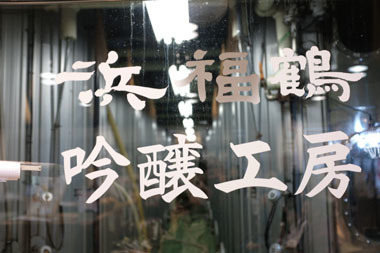 浜福鶴
吟醸工房